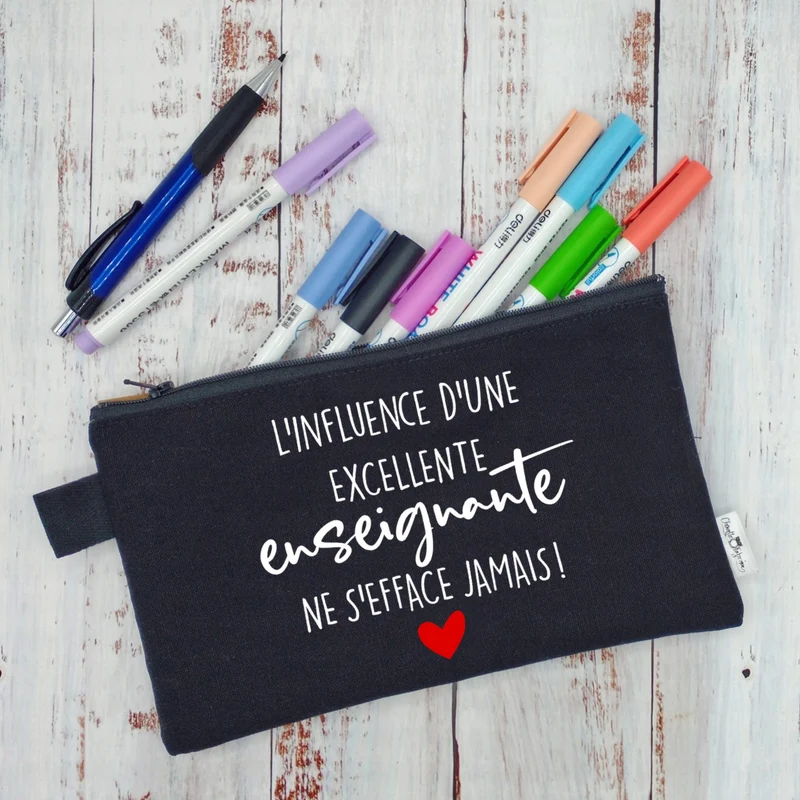 L'INFLUENCE D'UNE
EXCELLENTE
enseignante
NE S'EFFACE JAMAIS!
deli
deli